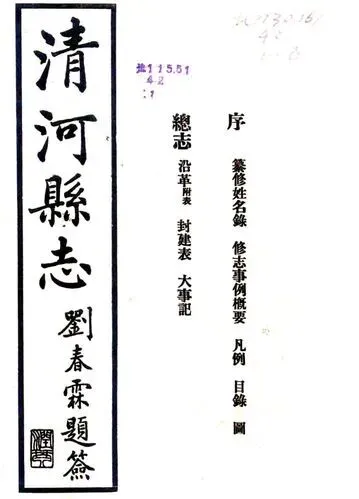 序
纂修姓名錄 修志事例概要 凡例 目錄 圖
總志
沿革附表 封建表 大事記
清河縣志
劉春霖題簽
115.51
42
:1